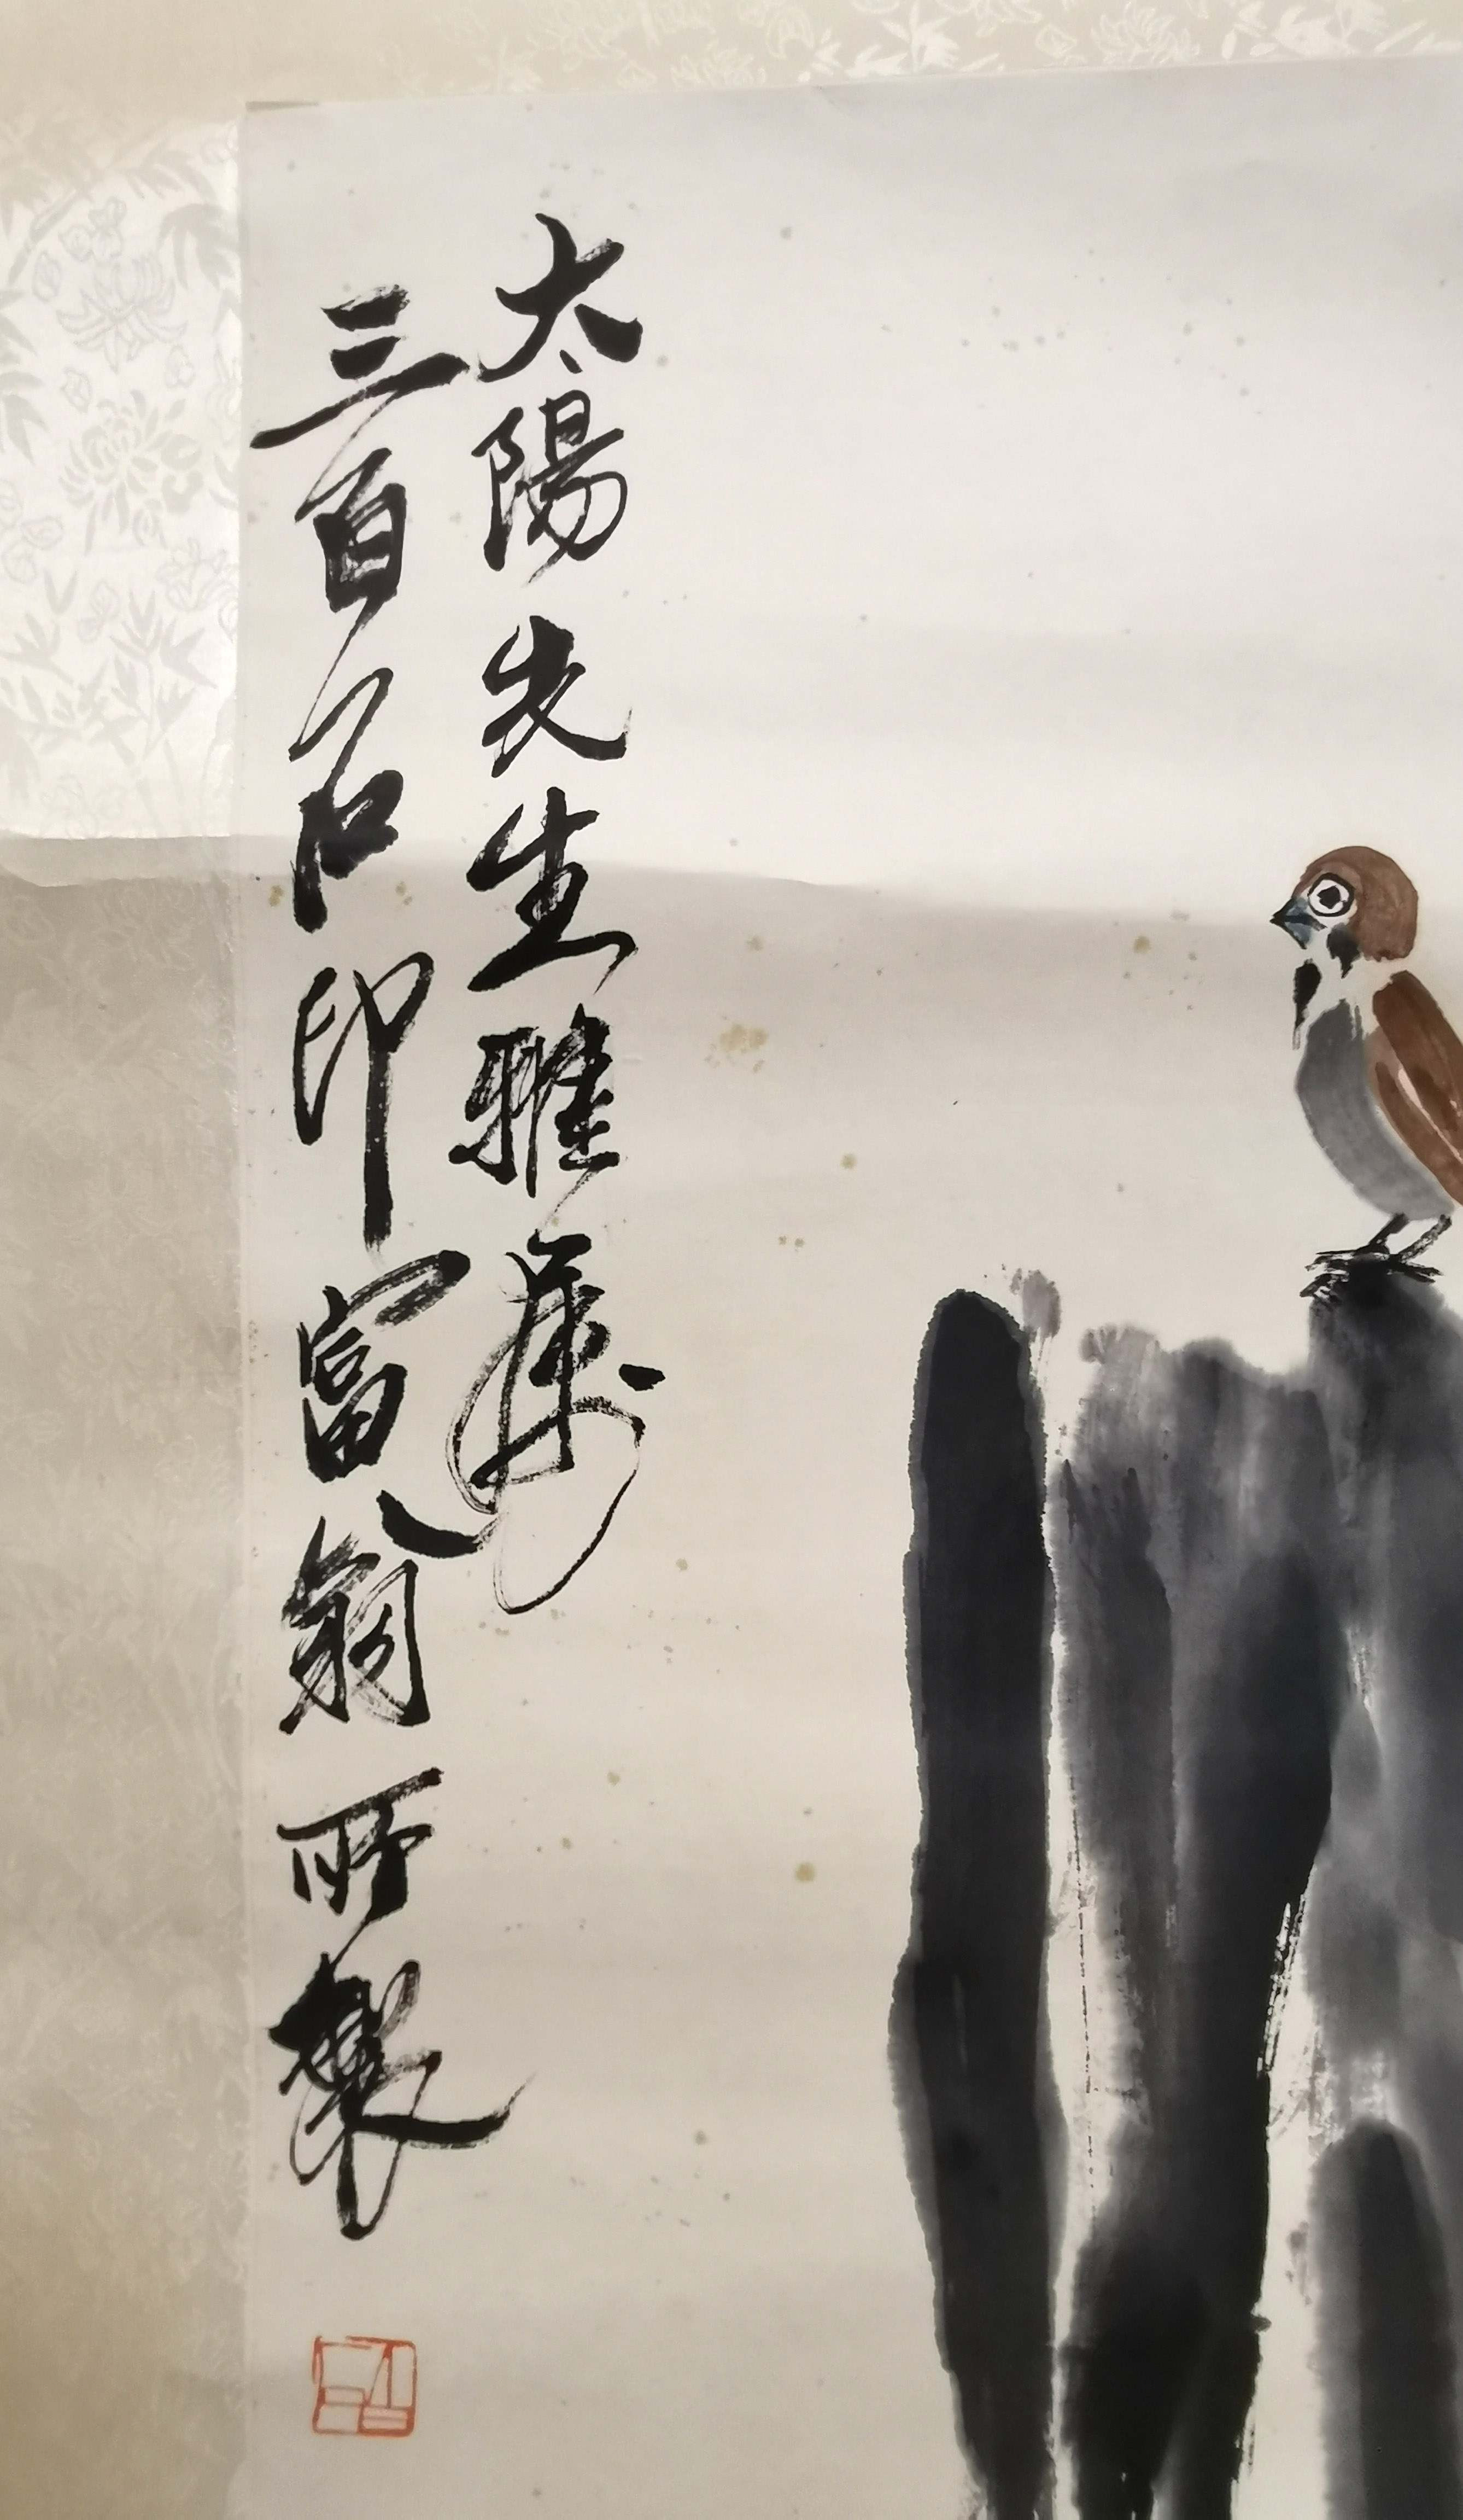 太陽先生雅屬
三百石印富翁所製